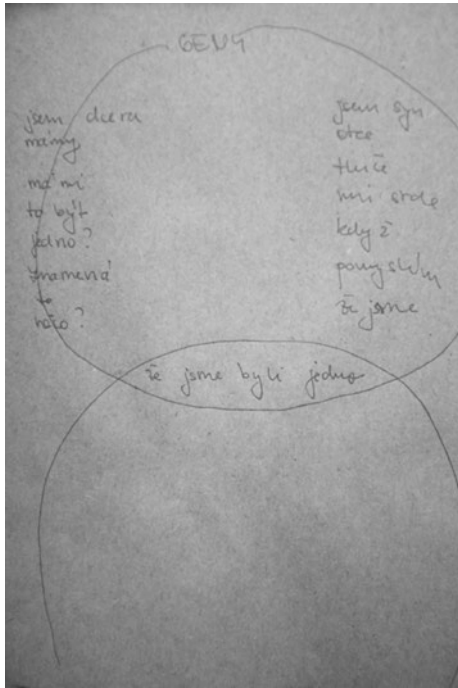 GENY
jsem dcera
mámy
má mi
to být
jedno?
znamená
to
něco?
jsem syn
otce
tluče
mi srdce
když
pomyslím
že jsme
že jsme byli jedno